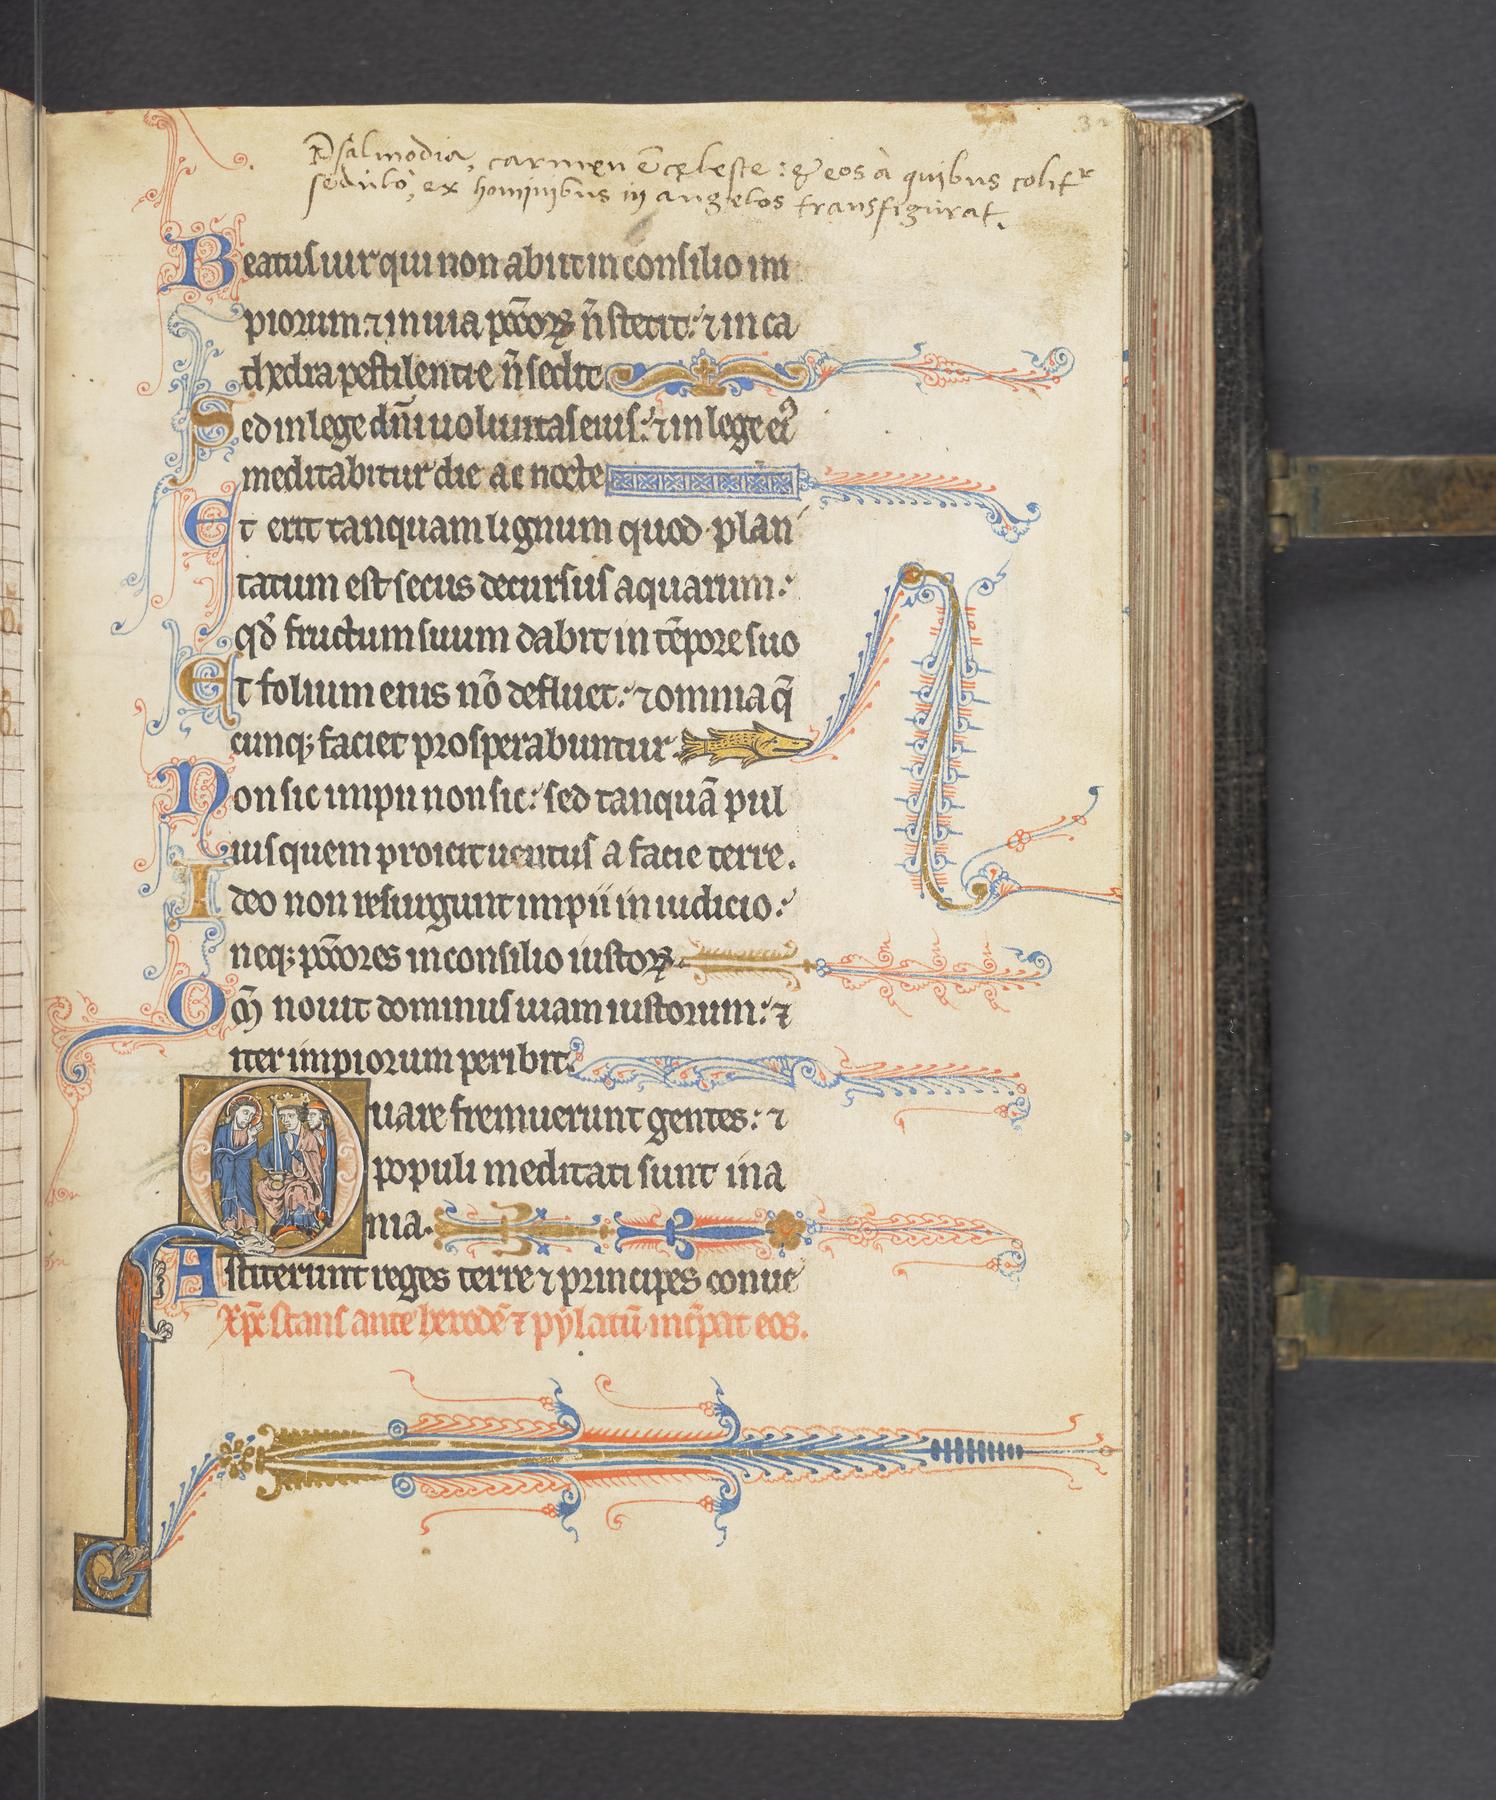 32
Psalmodia, carmen ē cęleste: & eos à quibus colit᷑
sedulò, ex hominibus in angelos transfigurat.
Beatus uir qui non abiit in consilio im
piorum: ⁊ in uia pcc̄oꝝ n̄ stetit: ⁊ in ca
thedra pestilentie n̄ sedit
Sed in lege dn̄i uoluntas eius: ⁊ in lege ei᷒
meditabitur die ac nocte
Et erit tanquam lignum quod plan
tatum est secus decursus aquarum:
qd̄ fructum suum dabit in tēpore suo
Et folium eius nō defluet: ⁊ omnia q̄
cunqꝫ faciet prosperabuntur.
Non sic impii non sic: sed tanquā pul
uis quem proicit uentus a facie terre.
Ideo non resurgunt impii in iudicio:
neqꝫ pcc̄ores in consilio iustoꝝ
Qm̄ nouit dominus uiam iustorum: ⁊
iter impiorum peribit.
Quare fremuerunt gentes: ⁊
populi meditati sunt ina
nia.
Astiterunt reges terre ⁊ principes conue
Xp̄c stans ante herodē ⁊ pylatū inc̄pat eos.